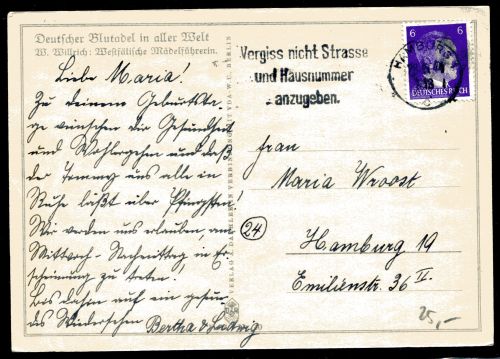 Deutscher Blutadel in aller Welt
W. Willrich: Westfälische Mädelführerin.
Liebe Maria!
Zu deinem Geburtsta-
ge wünschen dir Gesundheit
und Wohlergehen und daß
der Tommy uns alle in
Ruhe läßt über Pfingsten!
Wir werden uns erlauben am
Mittwoch-Nachmittag in Er-
scheinung zu treten!
Bis dahin auf ein gesun-
des Wiedersehen Bertha & Ludwig
Vergiss nicht Strasse
und Hausnummer
anzugeben.
HAMBURG
6 6
DEUTSCHES REICH
Frau
Maria Wroost
24
Hamburg 19
Emilienstr. 36 II.
25,-